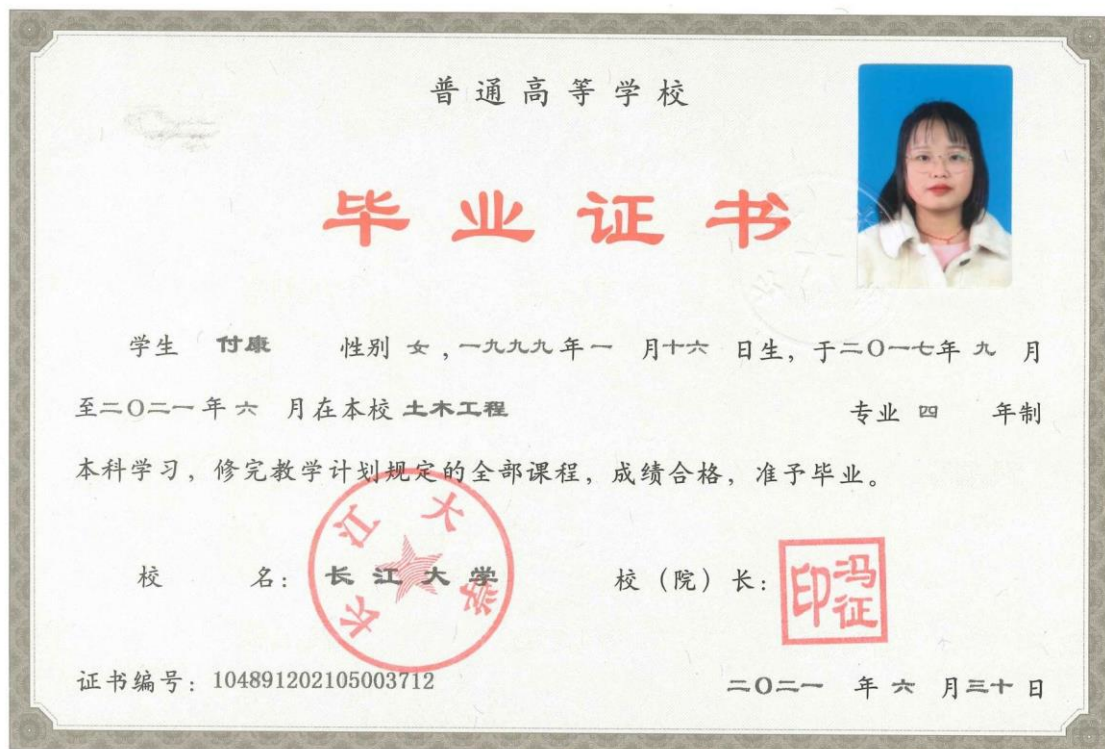 普通高等学校
毕业证书
学生 付康 性别 女，一九九九年一 月十六 日生，于二〇一七年 九 月
至二〇二一年 六 月在本校 土木工程 专业 四 年制
本科学习，修完教学计划规定的全部课程，成绩合格，准予毕业。
校 名：长江大学 校（院）长：
长江大学
冯征印
证书编号：104891202105003712 二〇二一 年 六 月三十日